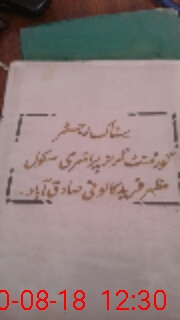 سٹاک رجسٹر
گورنمنٹ گرلز پرائمری سکول
مظہر فرید کالونی صادق آباد۔
0-08-18 12:30